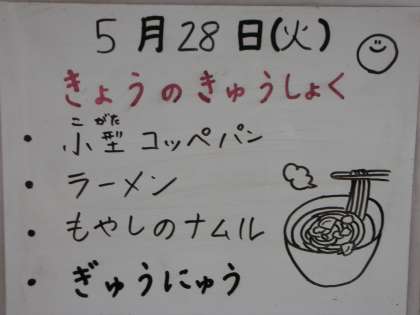 5月28日(火)
きょうのきゅうしょく
こ がた
・小型 コッペパン
・ラーメン
・もやしのナムル
・ぎゅうにゅう